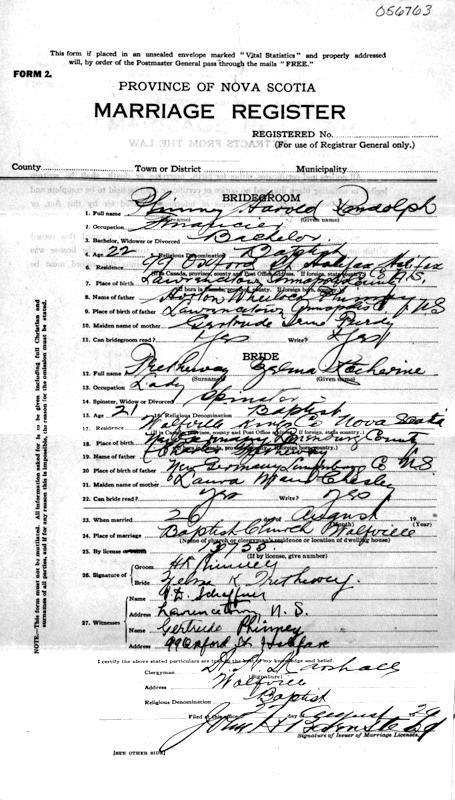 056763
This form if placed in an unsealed envelope marked "Vital Statistics" and properly addressed
will, by order of the Postmaster General pass through the mails "FREE."
FORM 2.
PROVINCE OF NOVA SCOTIA
MARRIAGE REGISTER
REGISTERED No.
(For use of Registrar General only.)
County Town or District Municipality
BRIDEGROOM
1. Full name Phinney Harold Randolph
(Surname) (Given name)
2. Occupation Financier
3. Bachelor, Widower or Divorced Bachelor
4. Age 22 5. Religious Denomination Baptist
6. Residence Oxford St Halifax Halifax
7. Place of birth Lawrencetown Annapolis County N.S.
8. Name of father Wheelock Phinney
9. Place of birth of father Lawrencetown Annapolis Co NS
10. Maiden name of mother Gertrude Purdy
11. Can bridegroom read? Yes Write? Yes
BRIDE
12. Full name Tretheway Zelma Katherine
(Surname) (Given name)
13. Occupation Lady
14. Spinster, Widow or Divorced Spinster
15. Age 21 16. Religious Denomination Baptist
17. Residence Wolfville Kings Co Nova Scotia
18. Place of birth New Germany Lunenburg County
19. Name of father Charles
20. Place of birth of father New Germany Lunenburg Co N.S.
21. Maiden name of mother Laura Maud Chesley
22. Can bride read? Yes Write? Yes
23. When married 26 August 19
(Month) (Year)
24. Place of marriage Baptist Church Wolfville
(Name of church or clergyman's residence or location of dwelling house)
25. By license or banns 13755
(If by license, give number)
26. Signature of Groom HR Phinney
Bride Zelma K. Trethewey.
27. Witnesses Name
Address Lawrencetown N.S.
Name Gertrude Phinney
Address 99 Oxford St Halifax
I certify the above stated particulars are to the best of my knowledge and belief.
Clergyman Marshall
(Signature)
Address Wolfville
Religious Denomination Baptist
Filed at this office day of August 1929
Signature of Issuer of Marriage Licenses.
[SEE OTHER SIDE]
NOTE.—This form must not be mutilated. All information asked for is to be given including full Christian and
surnames of all parties, and if for any reason this is impossible, the reason for the omission must be stated.